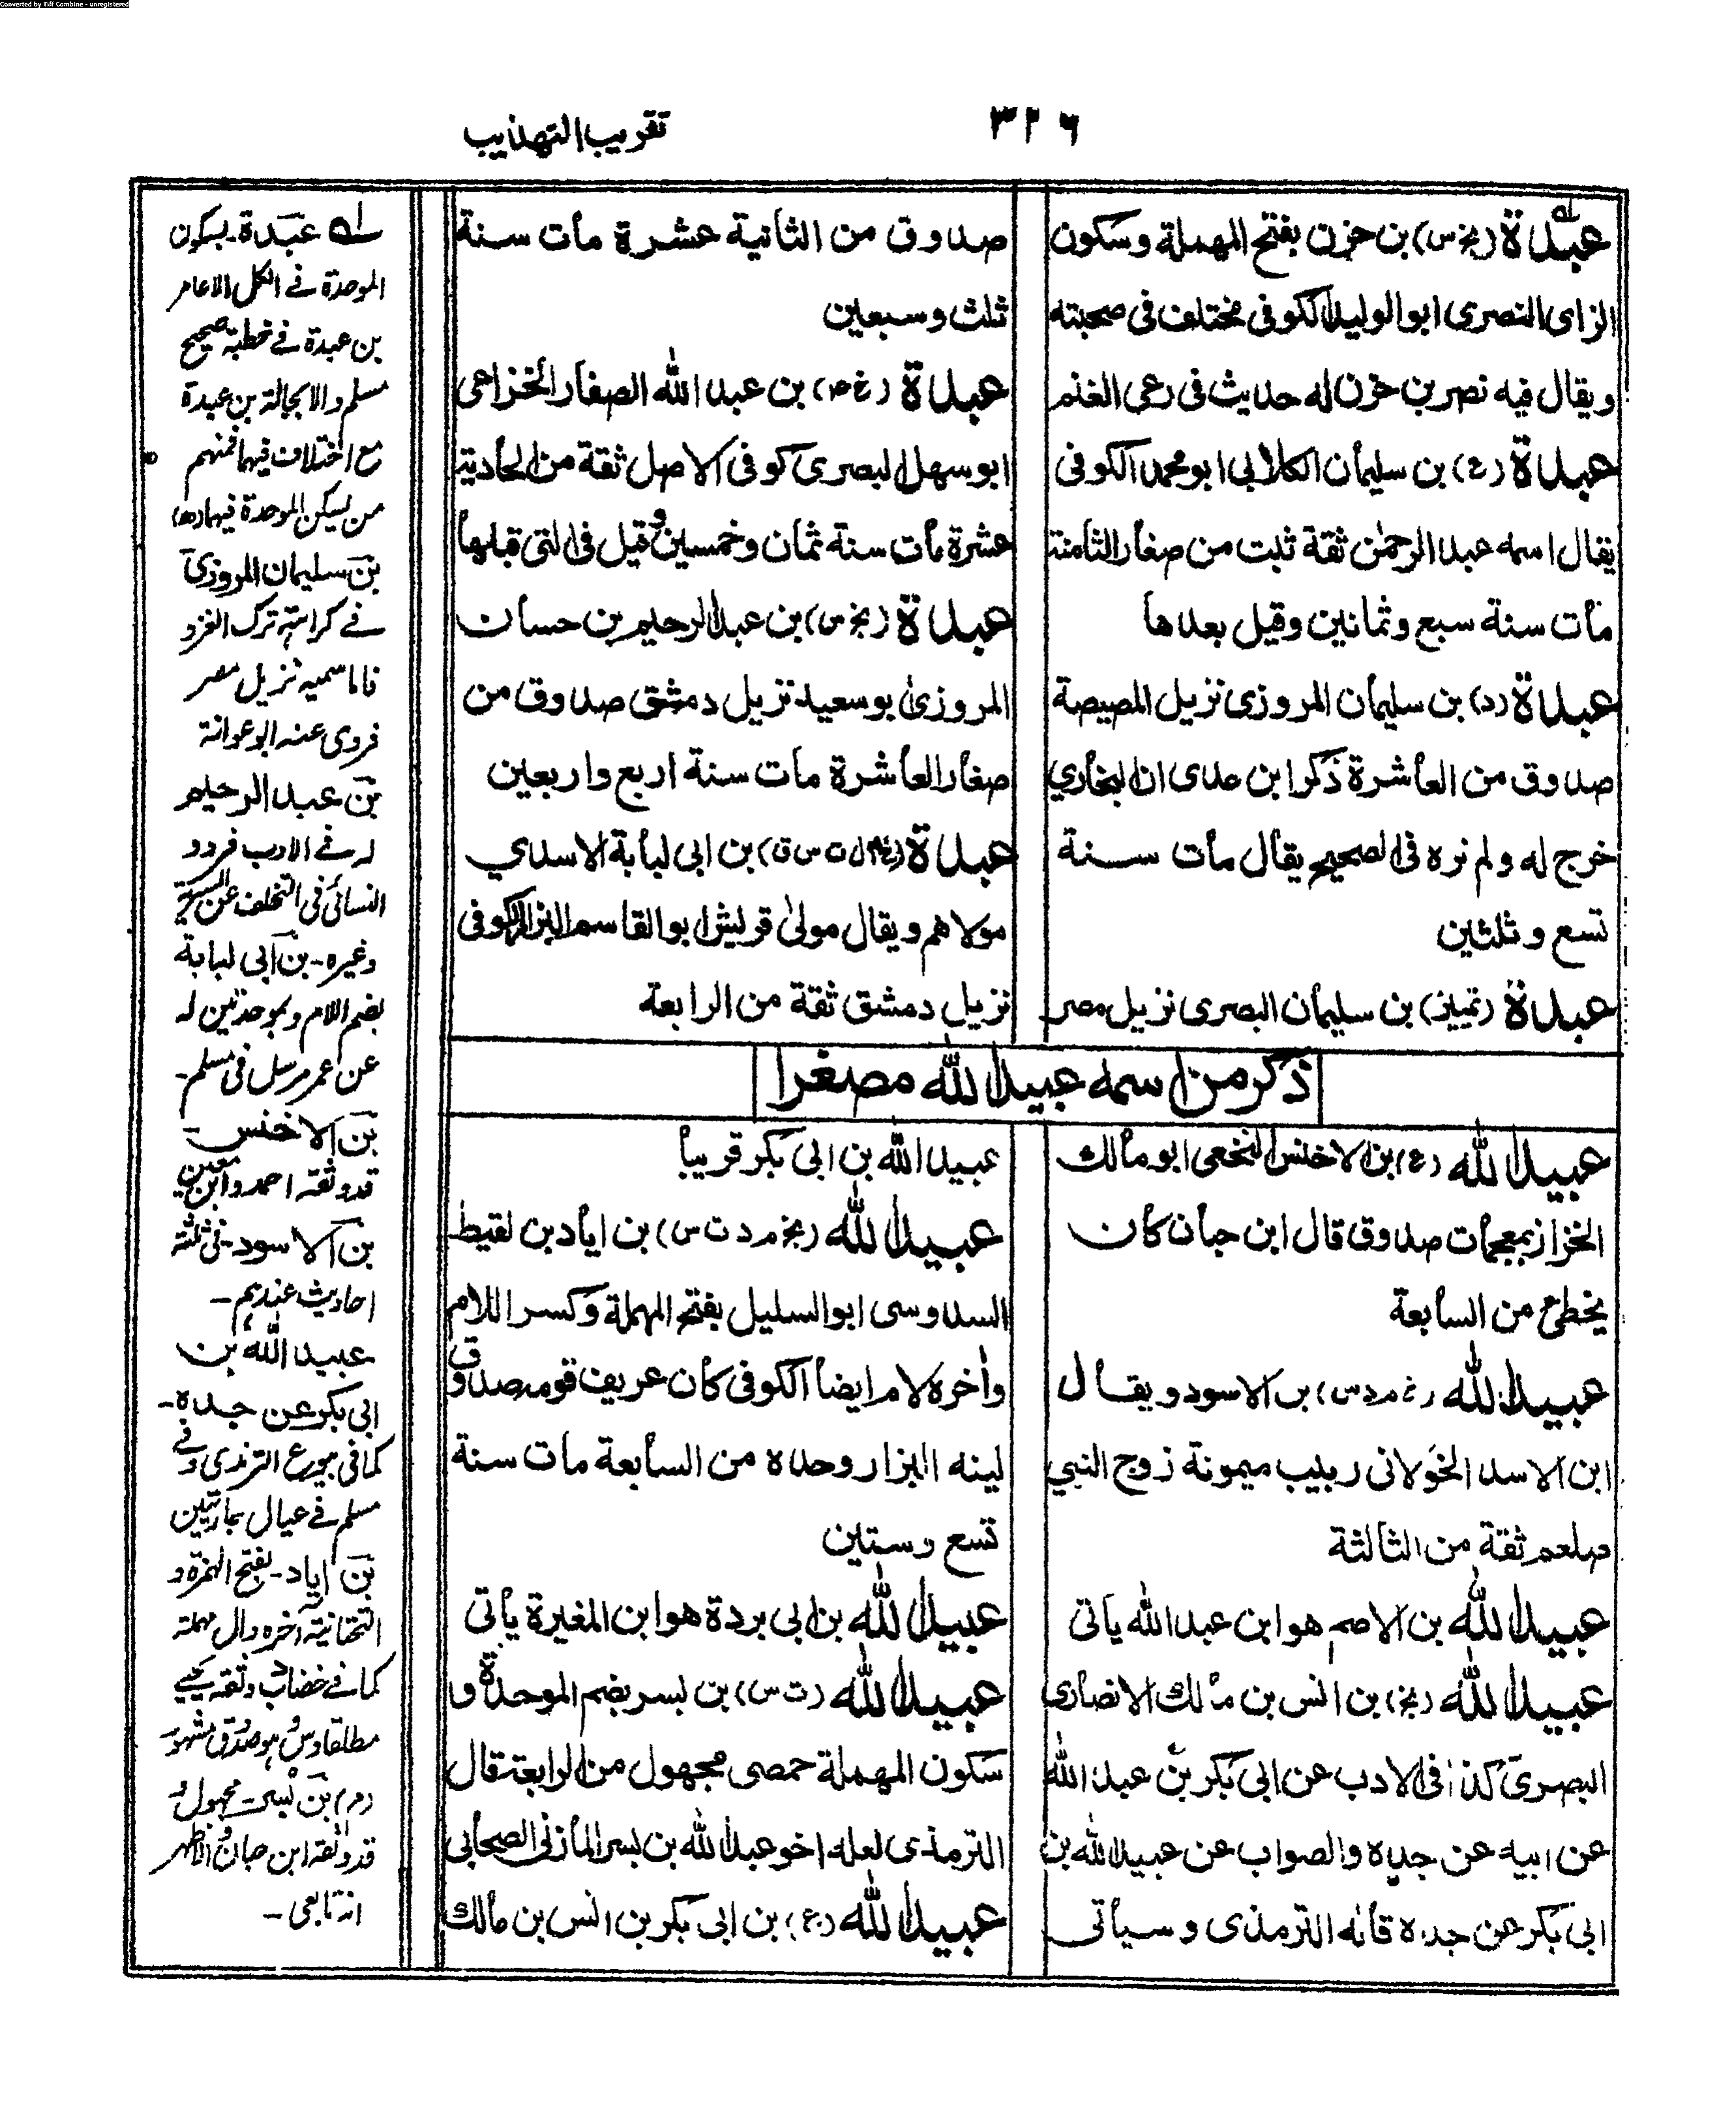 Converted by Tiff Combine - unregistered
٣٢٦
تقريب التهذيب
عبدة (بخ س) بن حزن بفتح المهملة وسكون
الزاى النصرى ابو الوليد الكوفى مختلف فى صحبته
ويقال فيه نصر بن حزن له حديث فى رعى الغنم
عبدة (ع) بن سليمان الكلابى ابو محمد الكوفى
يقال اسمه عبد الرحمٰن ثقة ثبت من صغار الثامنة
مات سنة سبع وثمانين وقيل بعدها
عبدة (د) بن سليمان المروزى نزيل المصيصة
صدوق من العاشرة ذكر ابن عدى ان البخاري
خرج له ولم نره فى الصحيح يقال مات سنة
تسع وثلثين
عبدة (تمييز) بن سليمان البصرى نزيل مصر
صدوق من الثانية عشرة مات سنة
ثلث وسبعين
عبدة (خ ص) بن عبد الله الصفار الخزاعى
ابو سهل البصرى كوفى الاصل ثقة من الحادية
عشرة مات سنة ثمان وخمسين وقيل فى التى قبلها
عبدة (بخ س) بن عبد الرحيم بن حسان
المروزى ابو سعيد نزيل دمشق صدوق من
صغار العاشرة مات سنة اربع واربعين
عبدة (خ م ل ت س ق) بن ابى لبابة الاسدي
مولاهم ويقال مولىٰ قريش ابو القاسم البزاز الكوفى
نزيل دمشق ثقة من الرابعة
ذكر من اسمه عبيد الله مصغرا
عبيد الله (ع) بن الاخنس النخعى ابو مالك
الخزاز بمعجمات صدوق قال ابن حبان كان
يخطئ من السابعة
عبيد الله (خ م د س) بن الاسود ويقال
ابن الاسد الخولانى ربيب ميمونة زوج النبي
صلعم ثقة من الثالثة
عبيد الله بن الاصم هو ابن عبد الله ياتى
عبيد الله (بخ) بن انس بن مالك الانصارى
البصرى كذا فى الادب عن ابى بكر بن عبد الله
عن ابيه عن جده والصواب عن عبيد الله بن
ابى بكر عن جده قاله الترمذى وسيأتى
عبيد الله بن ابى بكر قريبا
عبيد الله (بخ م د ت س) بن اياد بن لقيط
السدوسى ابو السليل بفتح المهملة وكسر اللام
واٰخره لام ايضا الكوفى كان عريف قومه صدوق
لينه البزار وحده من السابعة مات سنة
تسع وستين
عبيد الله بن ابى بردة هو ابن المغيرة يأتى
عبيد الله (ت س) بن بسر بضم الموحدة و
سكون المهملة حمصى مجهول من الرابعة قال
الترمذى لعله اخو عبد الله بن بسر المازنى الصحابى
عبيد الله (ع) بن ابى بكر بن انس بن مالك
لـه عبدة ـ بسكون
الموحدة فے الكل الا عامر
بن عبدة فے خطبة صحيح
مسلم والا بجالة بن عبدة
مع اختلاف فيهما فمنهم
من يسكن الموحدة فيهما (ه‍)
بن سليمان المروزى
فے كراهية ترك الغزو
فاما سميه نزيل مصر
فروى عنه ابو عوانة
بن عبد الرحيم
له فے الادب فرد و
النسائى فى التخلف عن السرية
وغيره ـ بن ابى لبابة
بضم اللام وبموحدتين له
عن عمر مرسل فى مسلم ـ
بن الاخنس ـ
قد وثقه احمد وابن معين
بن الاسود ـ فى ثلثة
احاديث عندهم ـ
عبيد الله بن
ابى بكر عن جده ـ
كما فى بيوع الترمذى وفے
مسلم فے عيال بجاريتين
بن اياد ـ بفتح الهمزة و
التحتانية آخره دال مهملة
كما فے خضاب وثقه يحيے
مطلقا و س وهو صدوق مشهور
(م) بن بسر ـ مجهول و
قد وثقه ابن حبان والاظهر
انه تابعى ـ